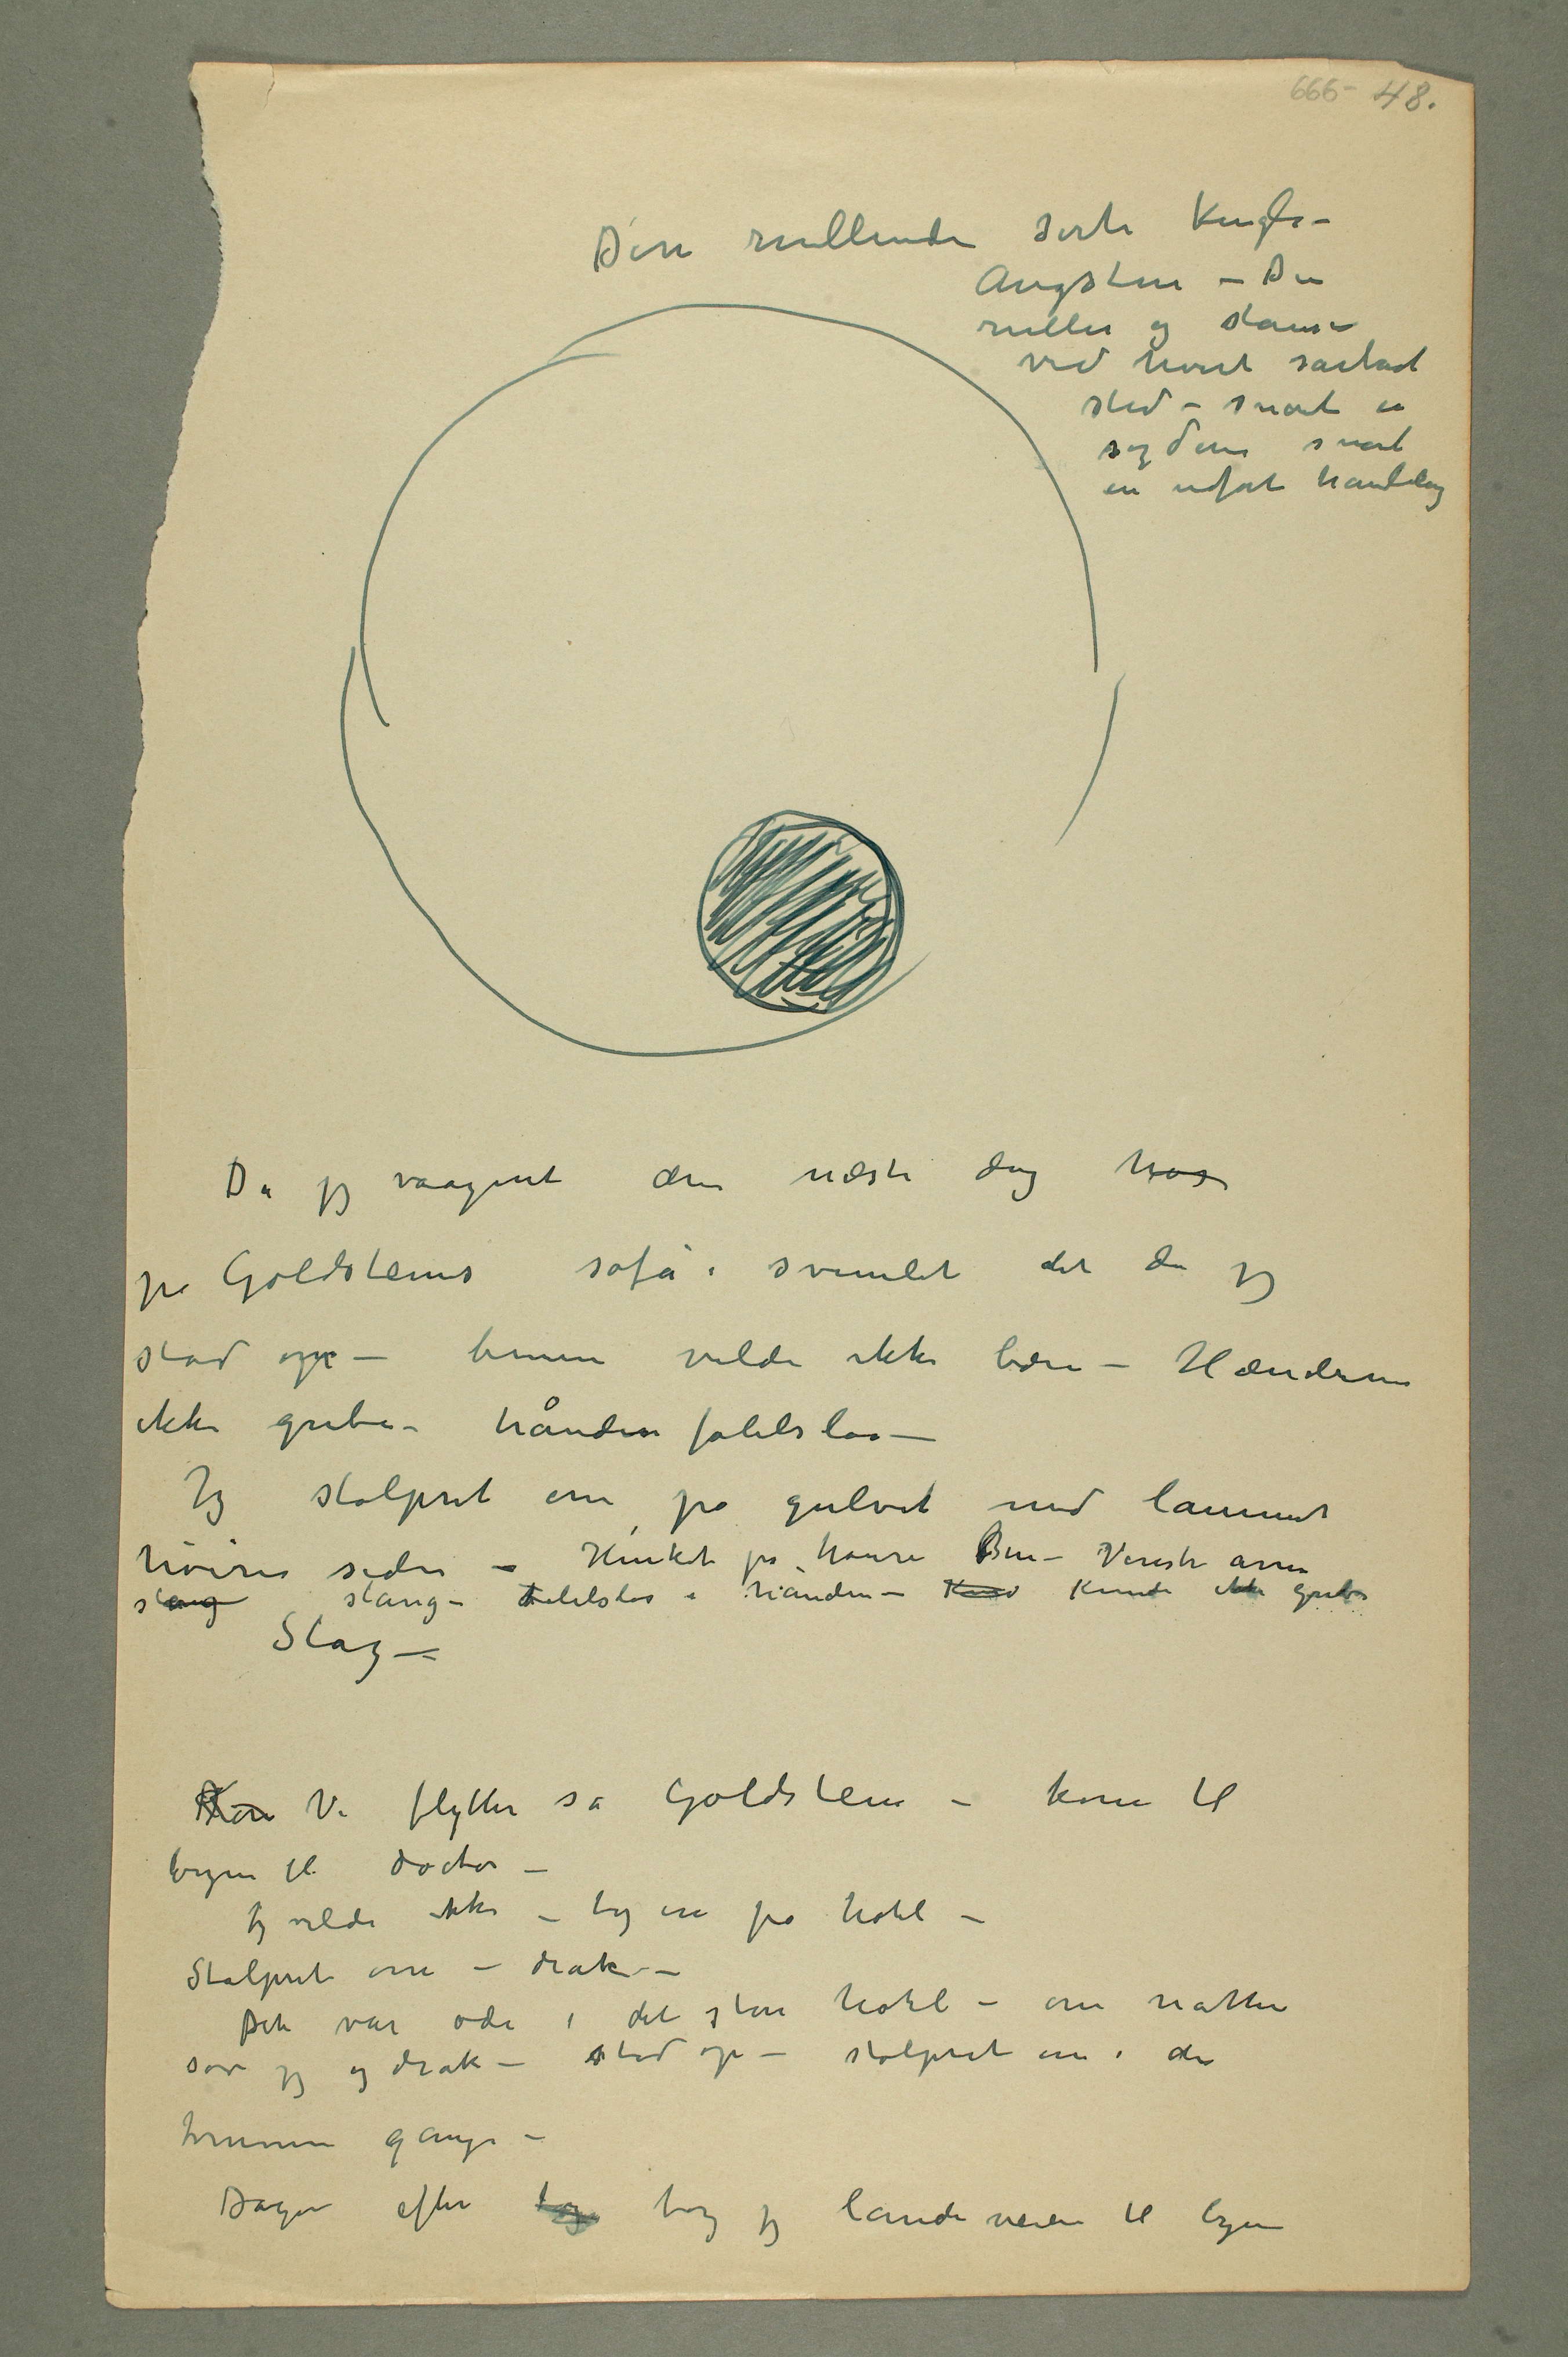 666- 48.
Den rullende sorte Kugle –
Angsten – Den
ruller og stanser
ved hvert saarbart
sted – snart en
sygdom snart
en udført handling
Da jeg vaagnet den næste dag hos
på Goldsteins sofa i svimlet det da jeg
stod op – benene vilde ikke bære – Hænderne
ikke gribe – hånden følelsløs –
Jeg stolpret om på gulvet med lammet
høire side – Hinket på høire Ben – Venstre arm
slang slang – følelsløs i hånden – Kund Kunde ikke gribe
Slag –
Kom Vi flytter sa Goldstein – kom til
byen til doctor –
Jeg vilde ikke – tog ind på hotel –
Stolpret om – drak –
Det var øde i det store hotel – om natten
sov jeg og drak – stod op – stolpret om i de
tomme gange –
Dagen efter tog tog jeg landeveien til byen